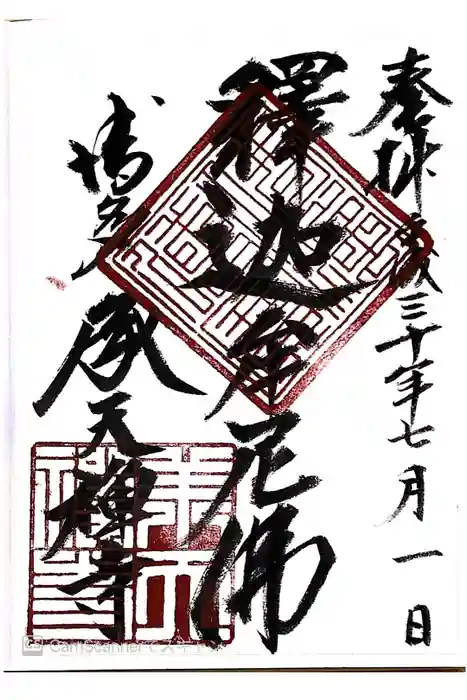 奉拝 平成三十年七月一日
釋迦牟尼佛
博多 承天禅寺
承天禅寺
CamScannerでスキャン